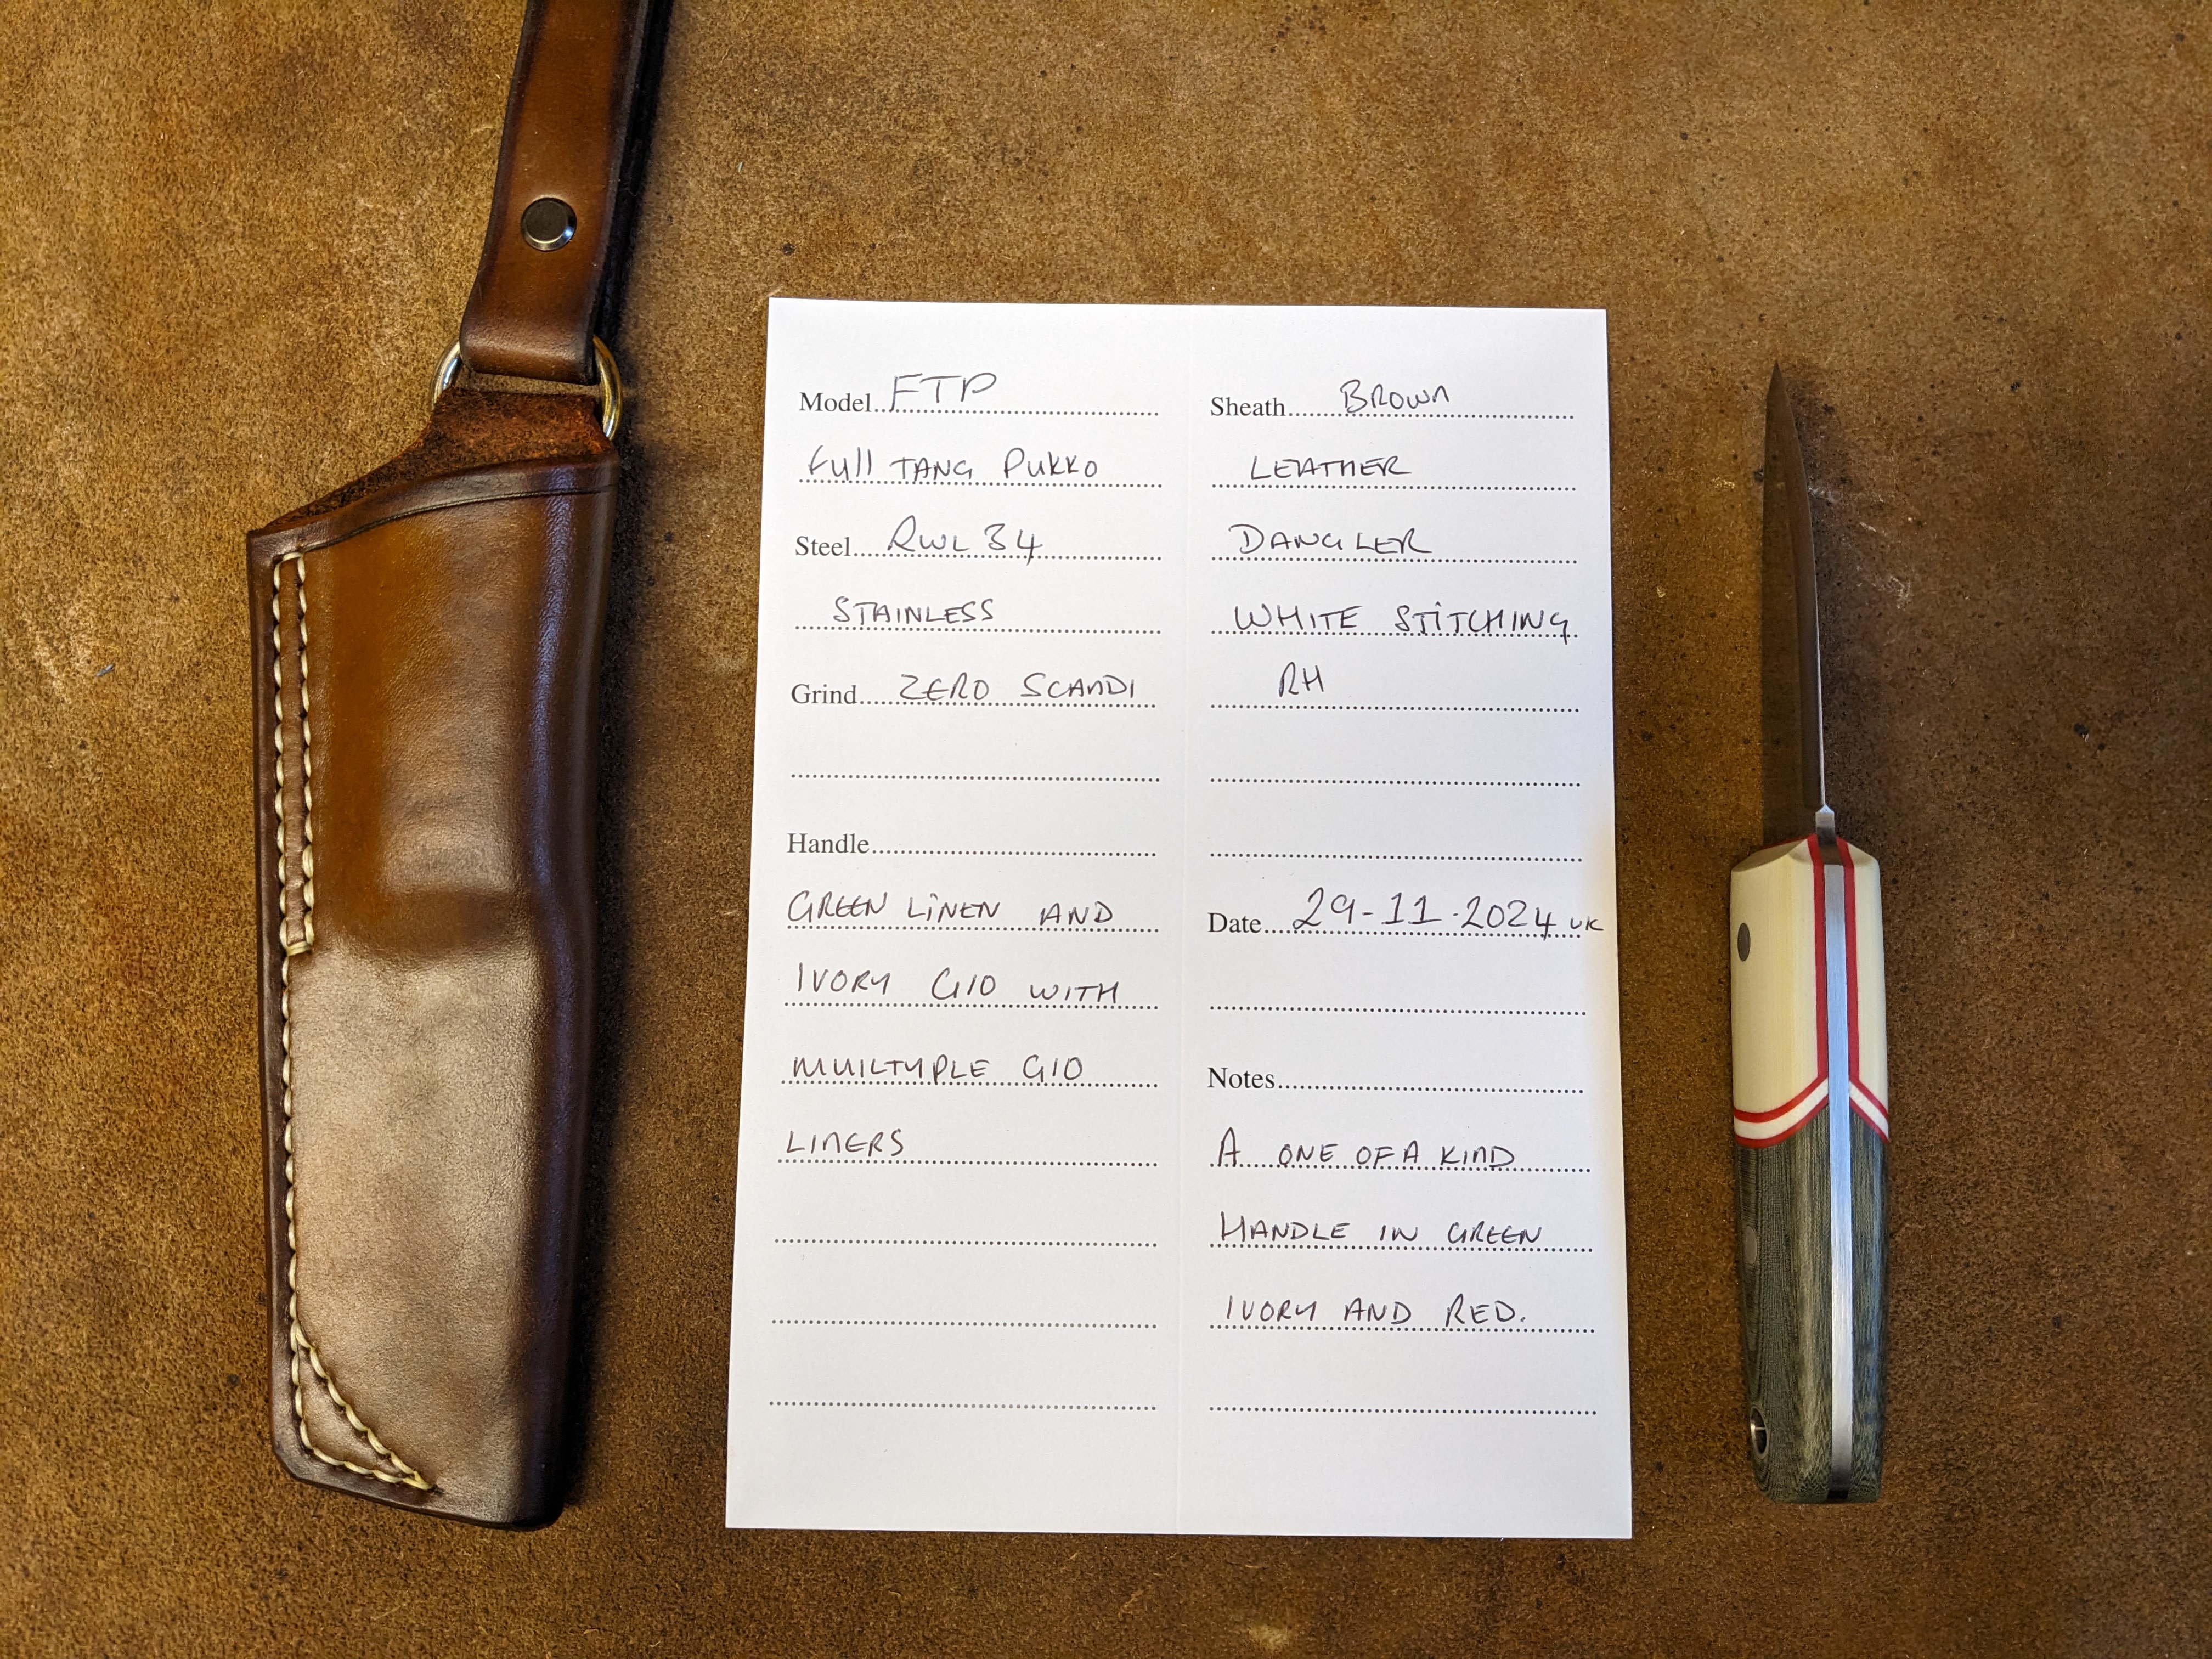 Model FTP
Full TANG PUKKO
Steel RWL 34
STAINLESS
Grind ZERO SCANDI
Handle
GREEN LINEN AND
IVORY G10 WITH
MUILTYPLE G10
LINERS
Sheath BROWN
LEATHER
DANGLER
WHITE STITCHING
RH
Date 29-11-2024 UK
Notes
A ONE OF A KIND
HANDLE IN GREEN
IVORY AND RED.